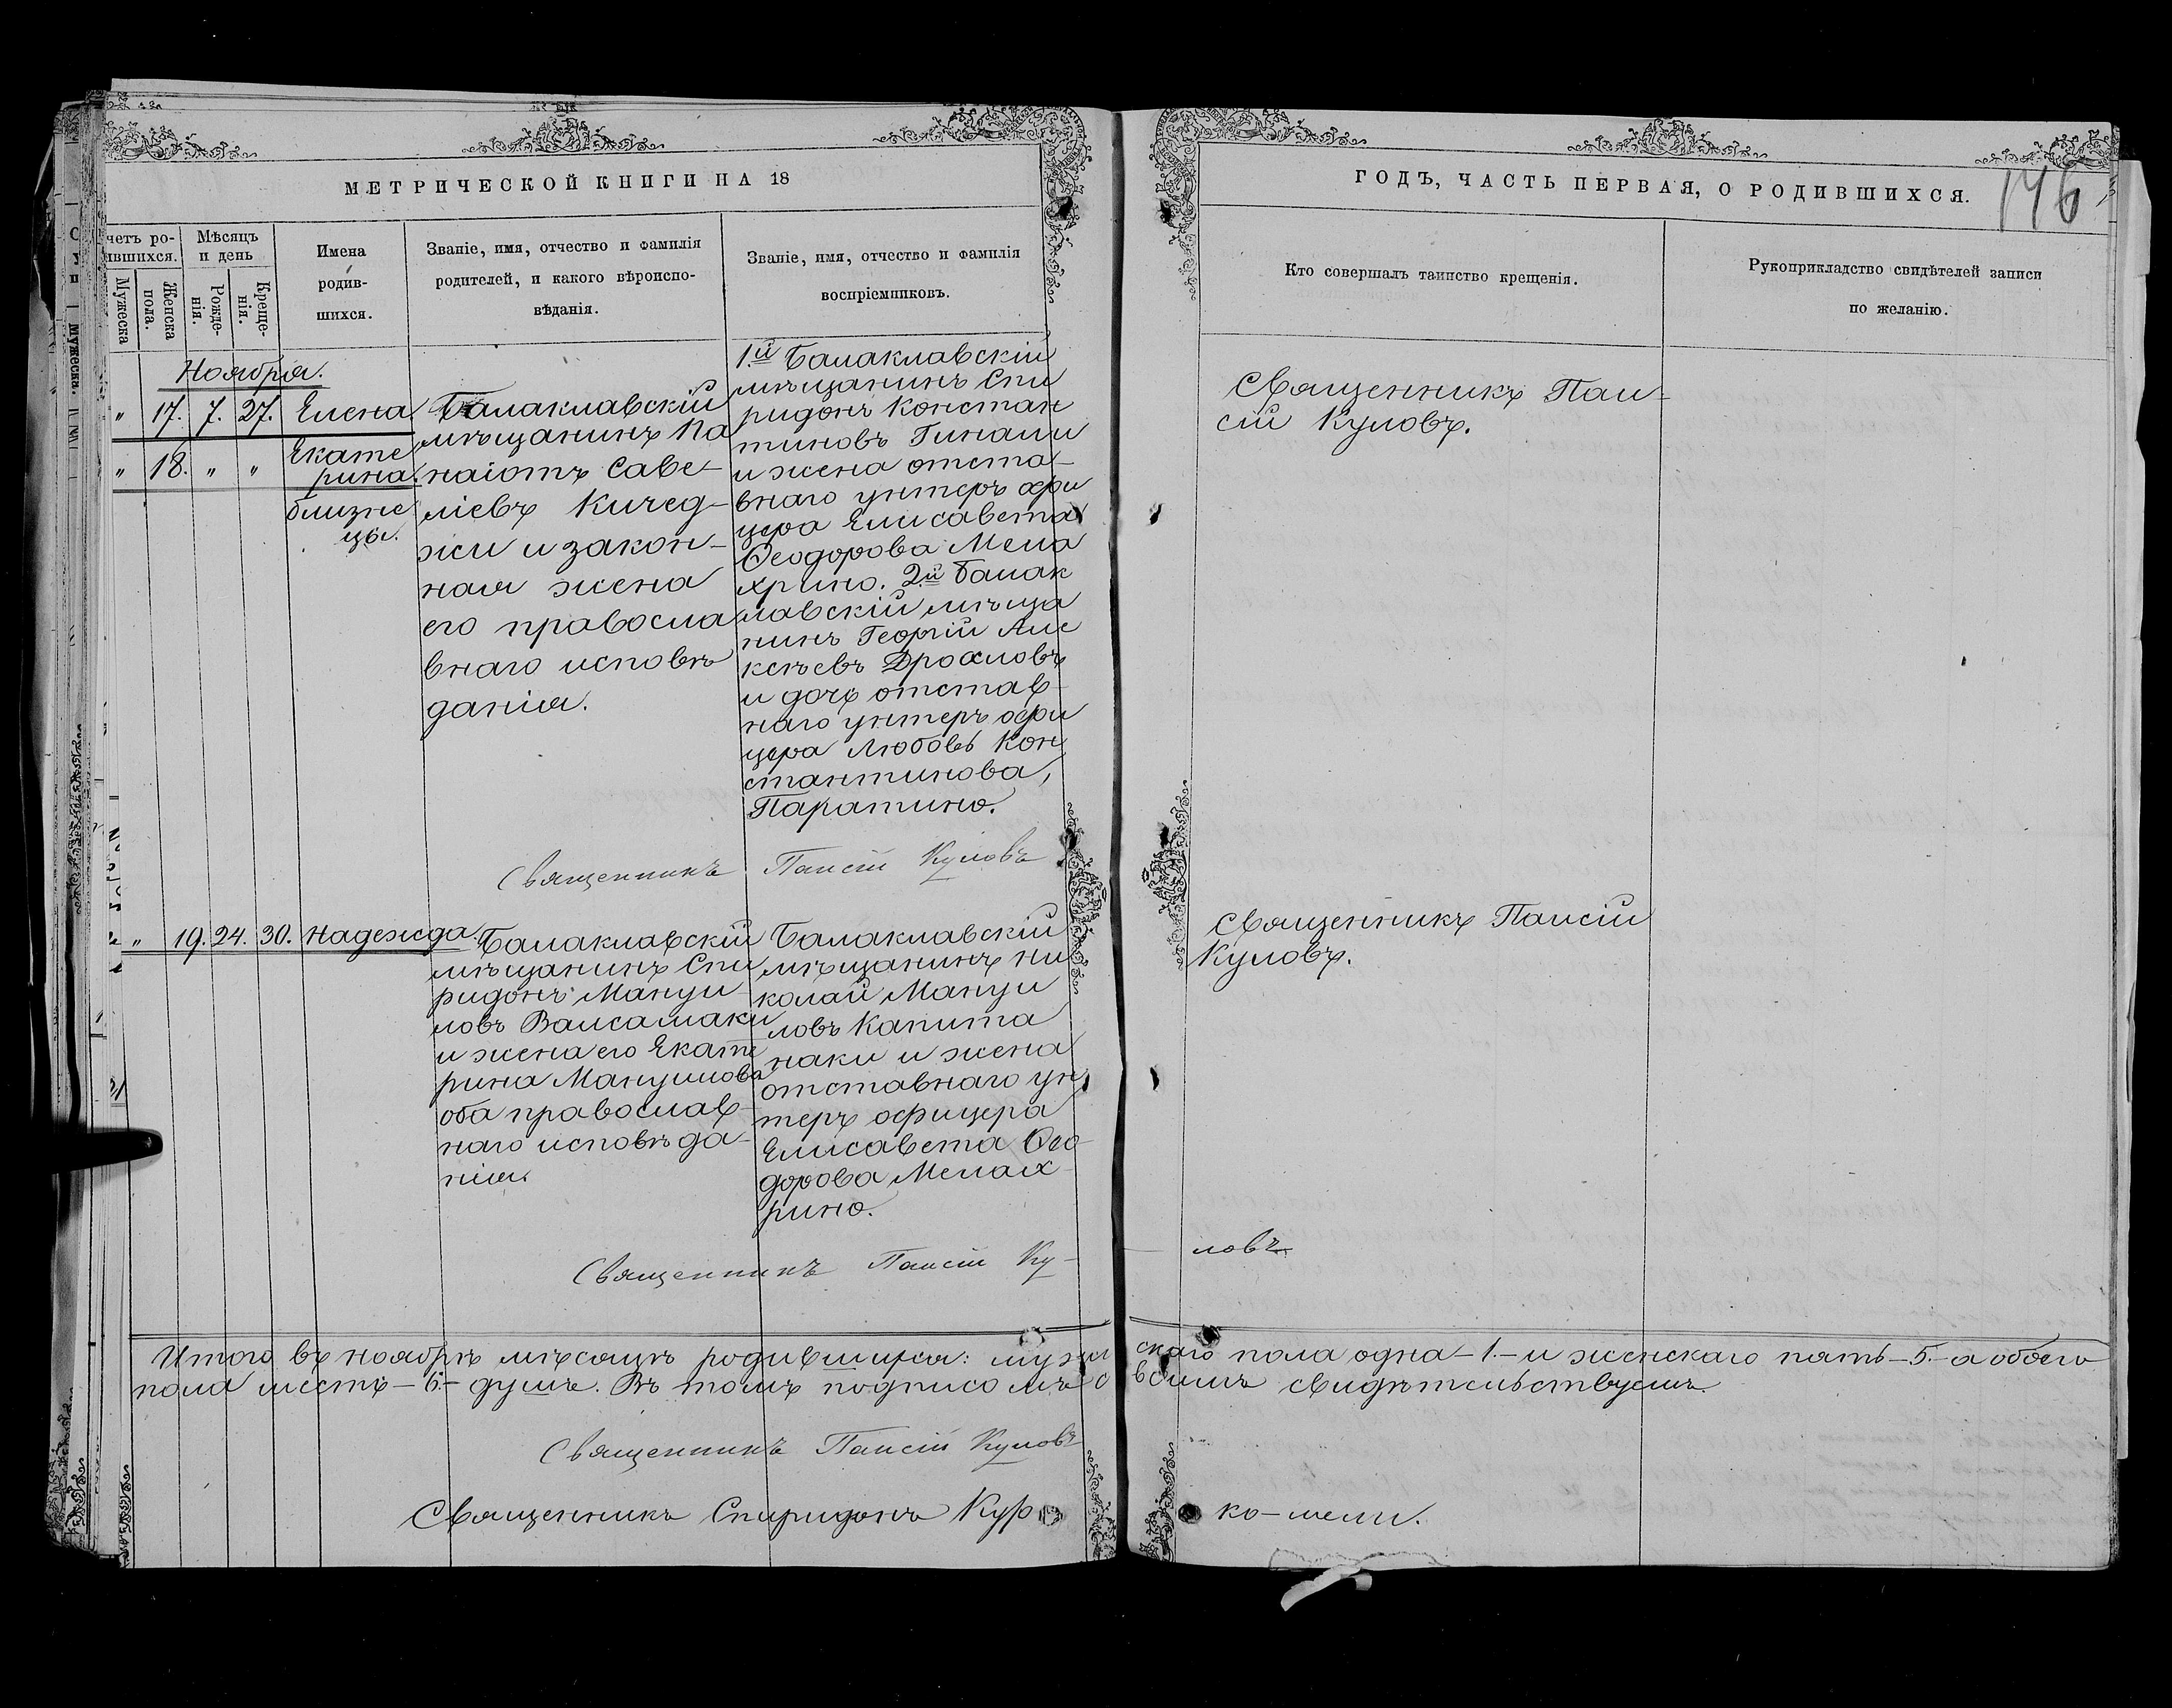 МЕТРИЧЕСКОЙ КНИГИ НА 18
ГОДЪ, ЧАСТЬ ПЕРВАЯ, О РОДИВШИХСЯ.
146
четъ ро-
ившихся.
Мужеска
Женска
пола.
Мѣсяцъ
и день
Рожде-
нія.
Креще-
нія.
Имена
родив-
шихся.
Званіе, имя, отчество и фамилія
родителей, и какого вѣроиспо-
вѣданія.
Званіе, имя, отчество и фамилія
воспріемниковъ.
Кто совершалъ таинство крещенія.
Рукоприкладство свидѣтелей записи
по желанію.
Ноября.
" 17. 7. 27. Елена
" 18. " " Екате
рина.
близне
цы.
Балаклавскій
мѣщанинъ Па
наіотъ Саве-
ліевъ Кичед-
жи и закон-
ная жена
его правосла
внаго исповѣ
данія.
1.й Балаклавскій
мѣщанинъ Спи
ридонъ Констан
тиновъ Гинали
и жена отста-
внаго унтеръ офи
цера Елисавета
Ѳеодорова Мела
хрино. 2.й Балак
лавскій мѣща
нинъ Георгій Але
ксѣевъ Дрохловъ
и дочь отстав-
наго унтеръ офи
цера Любовь Кон
стантинова,
Паратино.
Священникъ Паи-
сій Куловъ.
Священникъ Паисій Куловъ
" 19. 24. 30. Надежда.
Балаклавскій
мѣщанинъ Спи
ридонъ Мануи-
ловъ Валсамаки
и жена его Екате
рина Мануилова
оба православ-
наго исповѣда-
нія.
Балаклавскій
мѣщанинъ Ни
колай Мануи
ловъ Капита
наки и жена
отставнаго ун
теръ офицера
Елисавета Ѳео-
дорова Мелах-
рино.
Священникъ Паисій
Куловъ.
Священникъ Паисій Ку-
ловъ
Итого въ ноябрѣ мѣсяцѣ родившихся: мужескаго пола одна -1.- и женскаго пять -5.- а обоего
пола шесть -6.- душъ. Въ томъ подписомъ своимъ свидѣтельствуемъ.
Священникъ Паисій Куловъ
Священникъ Спиридонъ Кур
ко-мели.